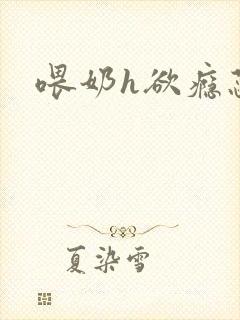 喂奶h欲瘾
夏染雪